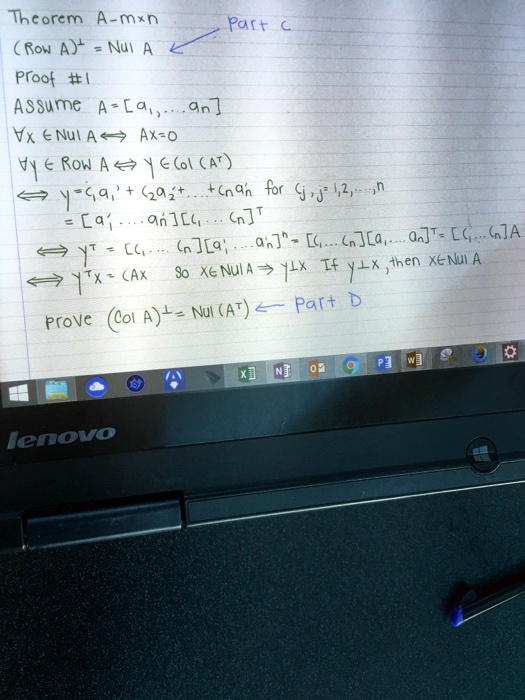 Theorem A-m×n
Part C
(Row A)⊥ = Nul A
Proof #1
Assume A=[a₁,....an]
∀x ∈ Nul A ⟺ AX=0
∀y ∈ Row A ⟺ y ∈ Col (Aᵀ)
⟺ y=c₁a₁' + c₂a₂'+....+cnan' for cj, j=1,2,....,n
= [a₁' .... an'][c₁ ... cn]ᵀ
⟺ yᵀ = [c₁ ... cn][a₁' .... an']ᵀ = [c₁ ... cn][a₁ ... an]ᵀ = [c₁ ... cn]A
⟺ yᵀx = CAX So X∈Nul A ⇒ y⊥x If y⊥x, then X∈Nul A
Prove (Col A)⊥ = Nul (Aᵀ) ← Part D
lenovo